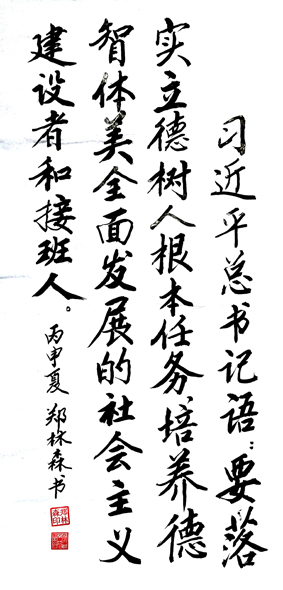 习近平总书记语:要落
实立德树人根本任务培养德
智体美全面发展的社会主义
建设者和接班人。
丙申夏 郑林森书
郑林森印